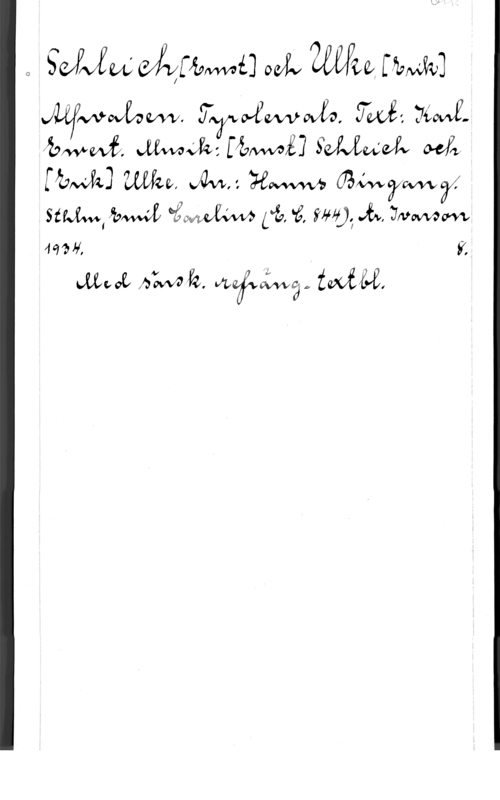 Schleich, [Ernst] och Ulke, [Erik]
Alprvalsen. Tyrolervals. Text: Karl-
Ewert. Musik: [Ernst] Schleich och
[Erik] Ulke. Arr.: Hanns Bingang.
Sthlm, Emil Carelius (E. C. 844), tr. Ivarson
1934. 8.
Med särsk. refräng-textbl.